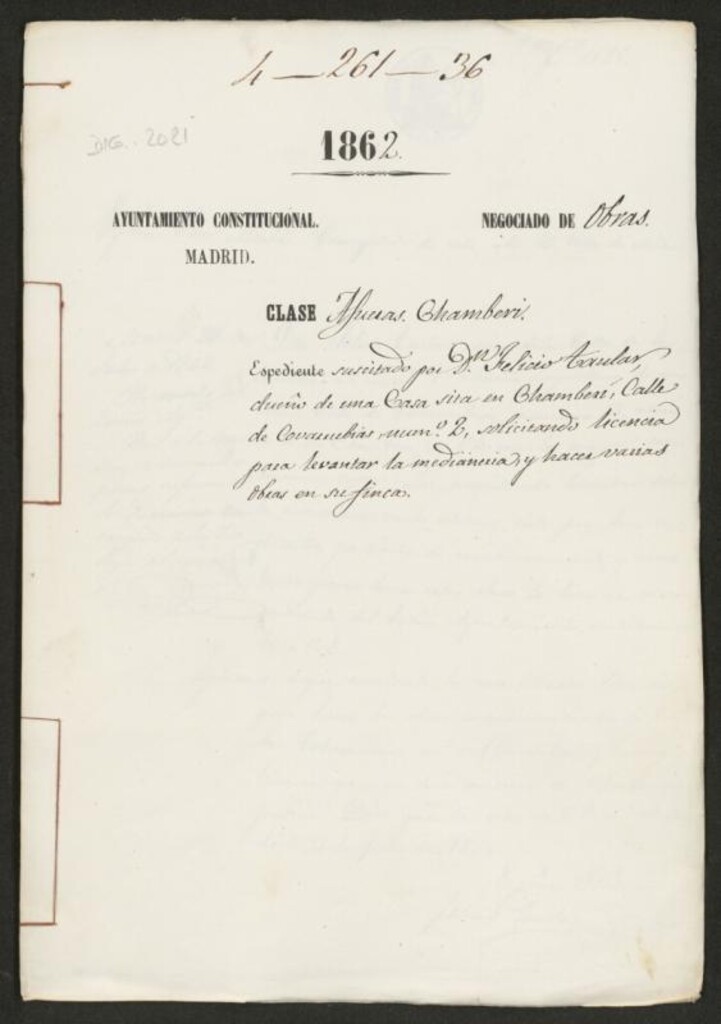 4 — 261 — 36
DIG. 2021
1862.
AYUNTAMIENTO CONSTITUCIONAL. NEGOCIADO DE Obras.
MADRID.
CLASE Afueras. Chamberi.
Espediente suscitado por D.ⁿ Felicio Taular,
dueño de una Casa sita en Chamberí, Calle
de Covarrubias, num.º 2, solicitando licencia
para levantar la medianeria, y hacer varias
obras en su finca.